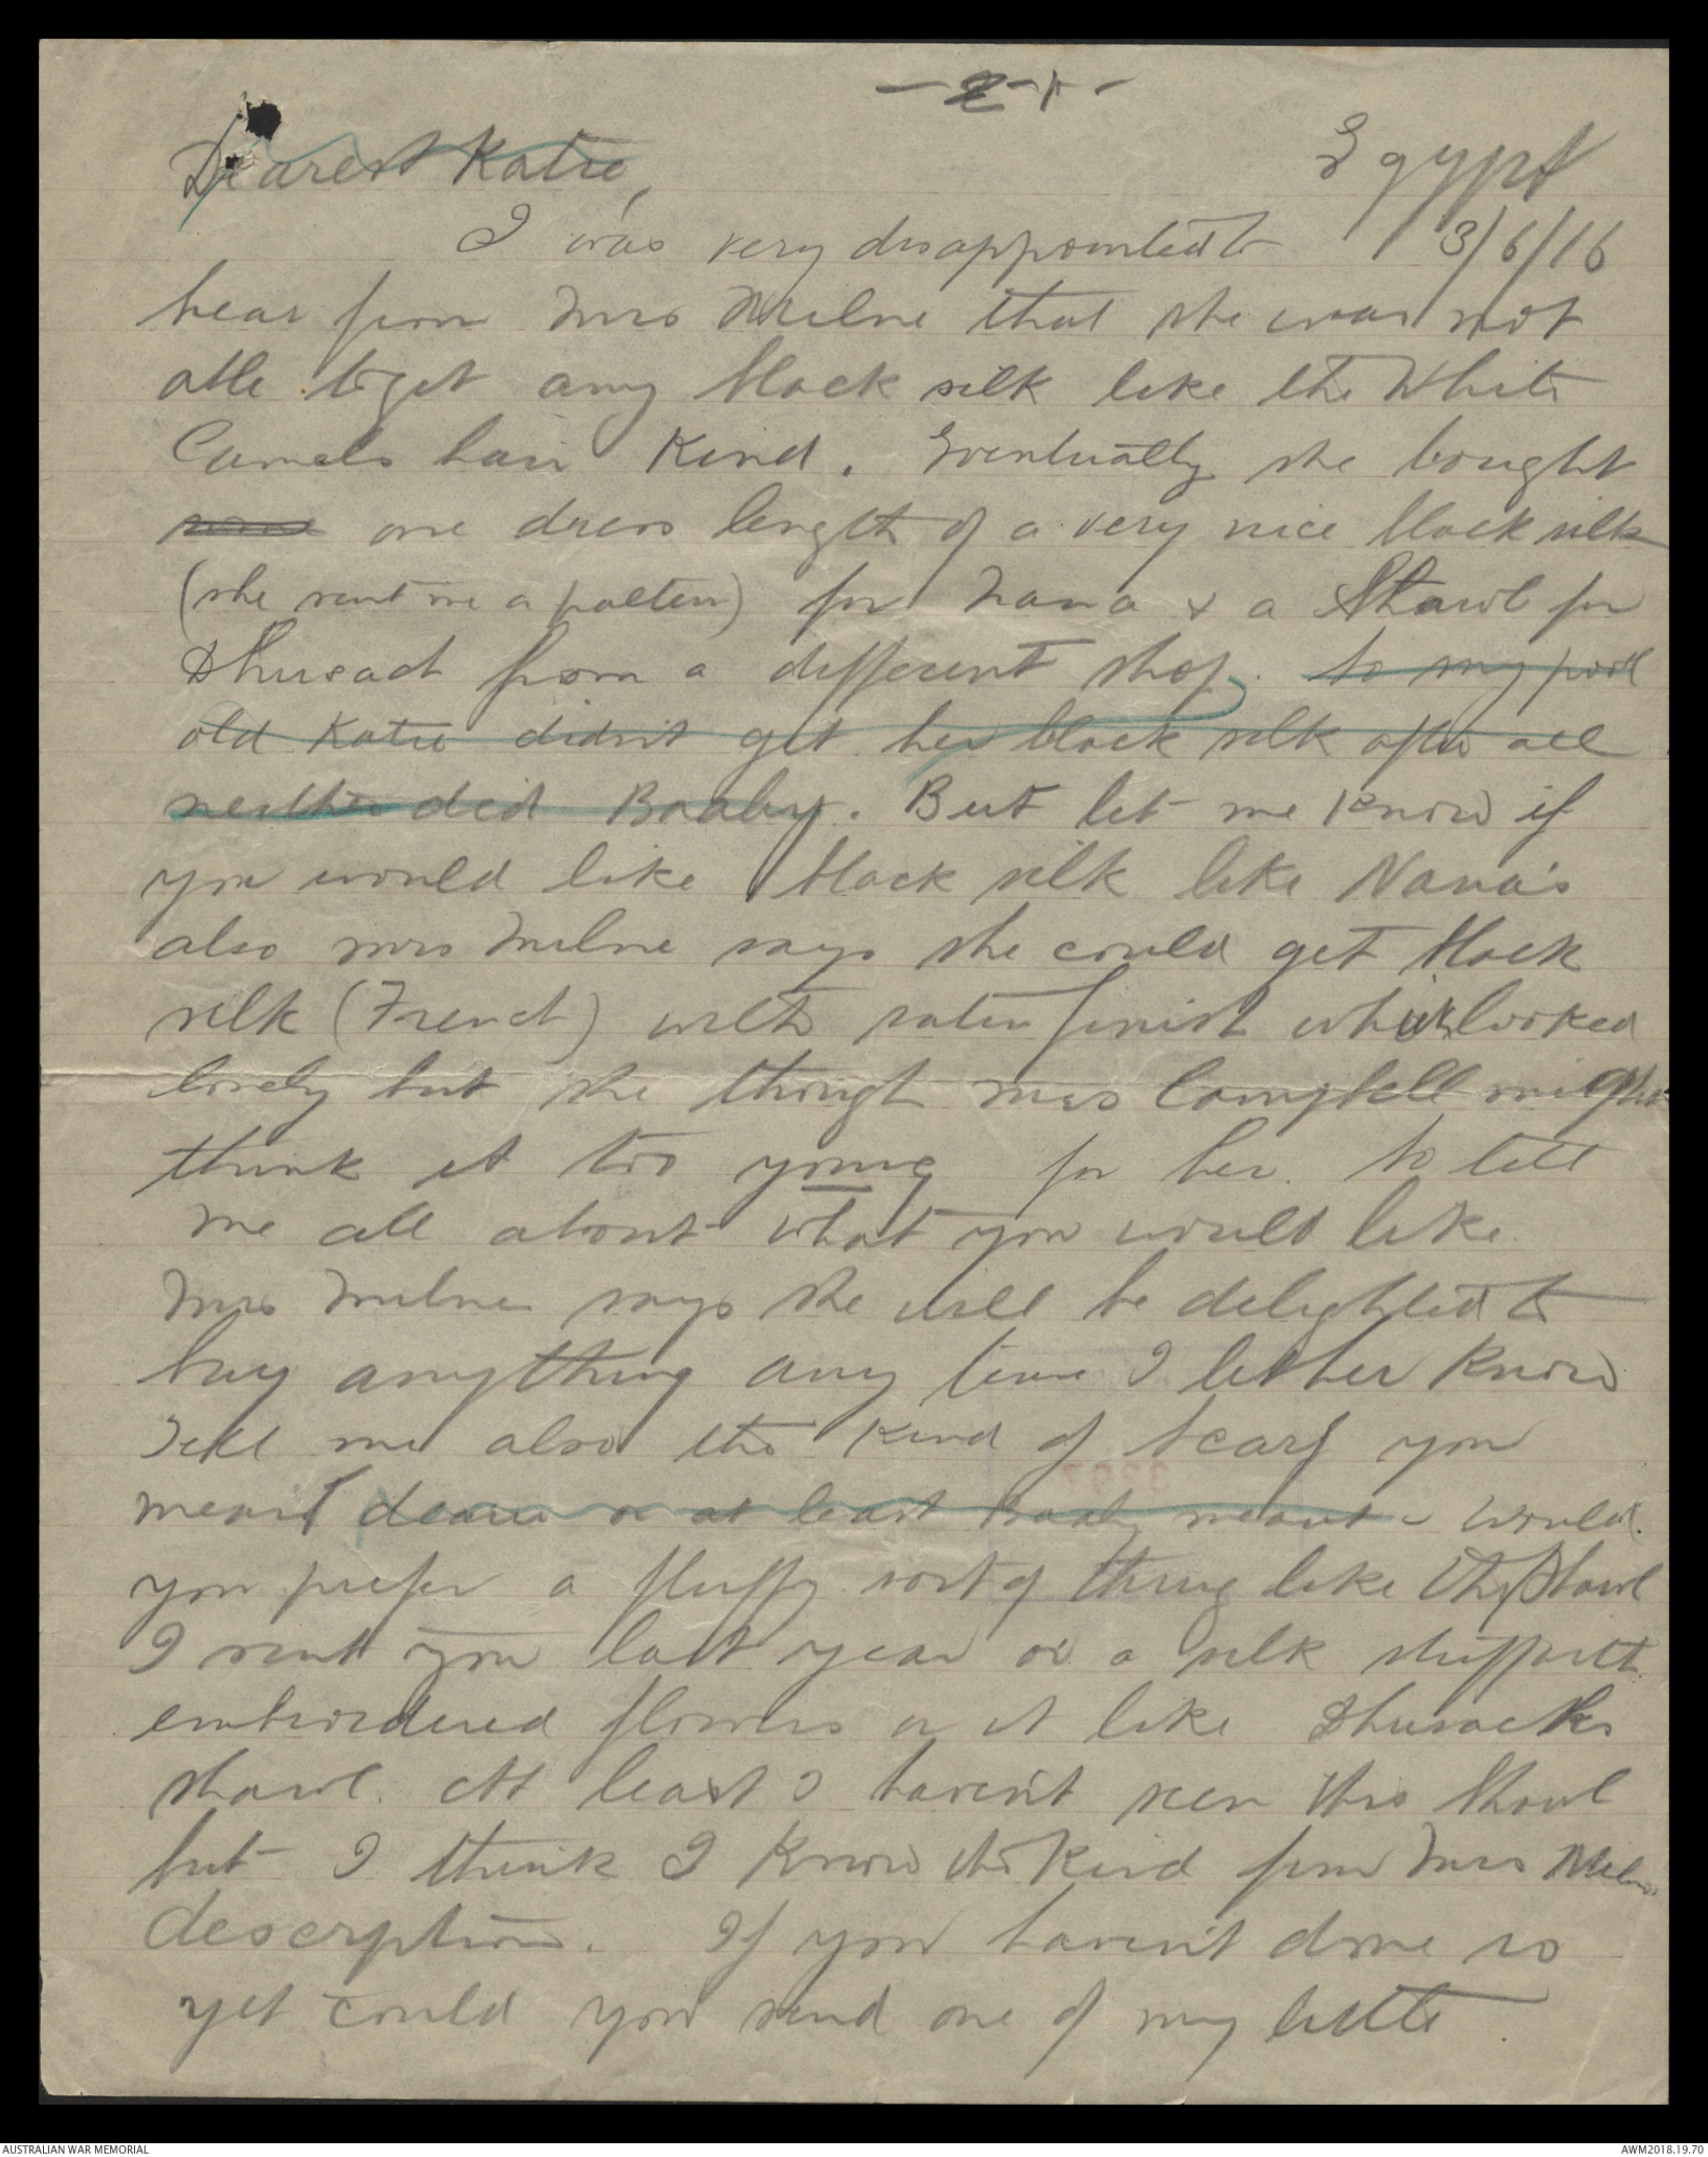 - 2 - 1 -
Dearest Katie,
Egypt
3/6/16
I was very disappointed to
hear from Mrs Milne that she was not
able to get any black silk like the White
Camels hair Kind. Eventually she bought
some one dress length of a very nice black silk
(she sent me a pattern) for Nana & a Shawl for
from a different shop. So my poor
old Katie didn't get her black silk after all
neither did Baaby. But let me know if
you would like black silk like Nana's
also Mrs Milne says she could get black
silk (French) with satin finish which looked
lovely but she though Mrs Campbell might
think it too young for her. So tell
me all about what you would like.
Mrs Milne says she will be delighted to
buy anything any time I let her Know
Tell me also the Kind of Scarf you
meant dearie or at least Baaby meant - would
you prefer a fluffy sort of thing like the Shawl
I sent you last year or a silk stuff with
embroidered flowers on it like
shawl. At least I haven't seen this Shawl
but I think I Know the Kind from Mrs Milnes
description. If you haven't done so
yet could you send one of my little
AUSTRALIAN WAR MEMORIAL
AWM2018.19.70